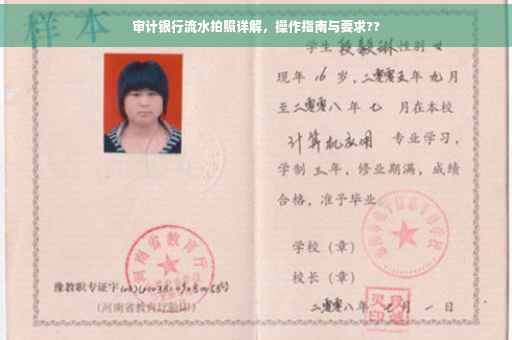 审计银行流水拍照详解，操作指南与要求??
样本
学生段毅琳性别女
现年16岁，二零零五年九月
至二零零八年七月在本校
计算机应用专业学习，
学制三年，修业期满，成绩
合格，准予毕业
学校（章）
校长（章）
二零零八年七月一日
河南省教育厅
豫教职专证字
(河南省教育厅验印)